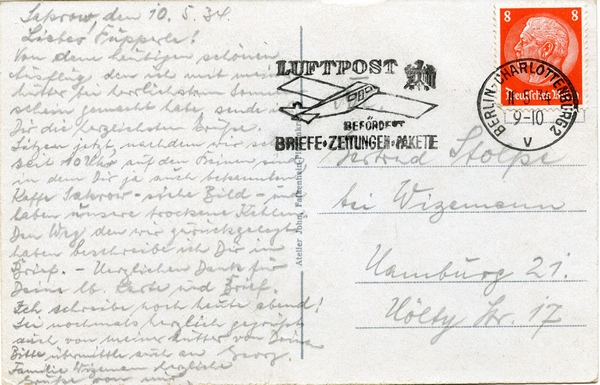 Sakrow, den 10.5.34.
Liebes Püpperle!
Von dem heutigen schönen
Ausflug, den ich mit meiner
Mutter bei herrlichstem Sonnen-
schein gemacht habe sende
Dir die herzlichsten Grüße.
Sitzen jetzt, nachdem wir
seit 10 Uhr auf den Beinen sind
in dem Dir ja auch bekannten
Kaffe Sakrow - siehe Bild -
laben unsere trockene Kehlen.
Den Weg den wir zurückgelegt
haben beschreibe ich Dir im
Brief. - Herzlichen Dank für
Deine lb. Karte und Brief.
Ich schreibe noch heute abend!
Sei nochmals herzlich gegrüßt
auch von meiner Mutter von
Bitte übermittle auch an Georg,
Familie Wizemann herzliche
Grüße von mir.
Atelier John, Falkenhain
LUFTPOST
BEFÖRDERT
BRIEFE·ZEITUNGEN·PAKETE
8 8
Deutsches Reich
BERLIN-CHARLOTTENBURG 2
9-10
V
Gertrud Stolpe
bei Wizemann
Hamburg 21.
Hölty Str. 17